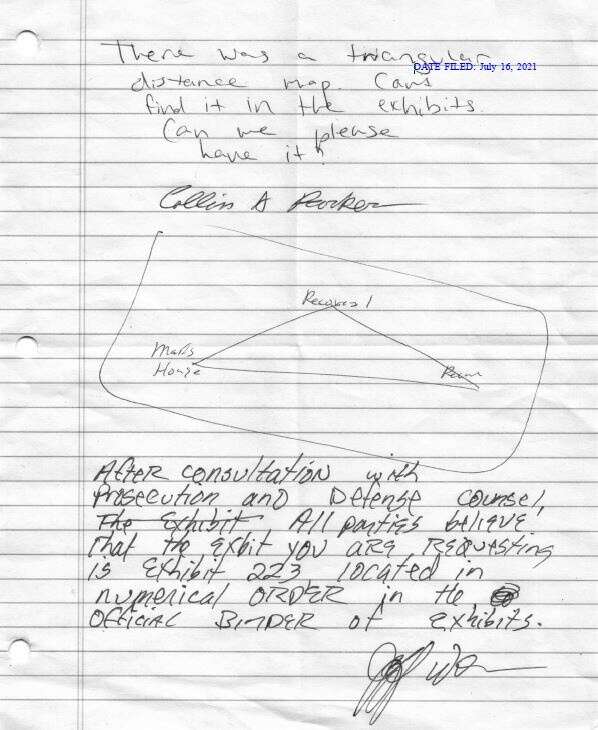 There was a triangular
DATE FILED: July 16, 2021
distance map. Cant
find it in the exhibits.
Can we please
have it?
Collin A
House
AFTER consultation with
Prosecution and Defense counsel,
The Exhibit All parties believe
that the exbit you are requesting
is Exhibit 223, located in
numerical ORDER in the
OFFICIAL BINDER of exhibits.